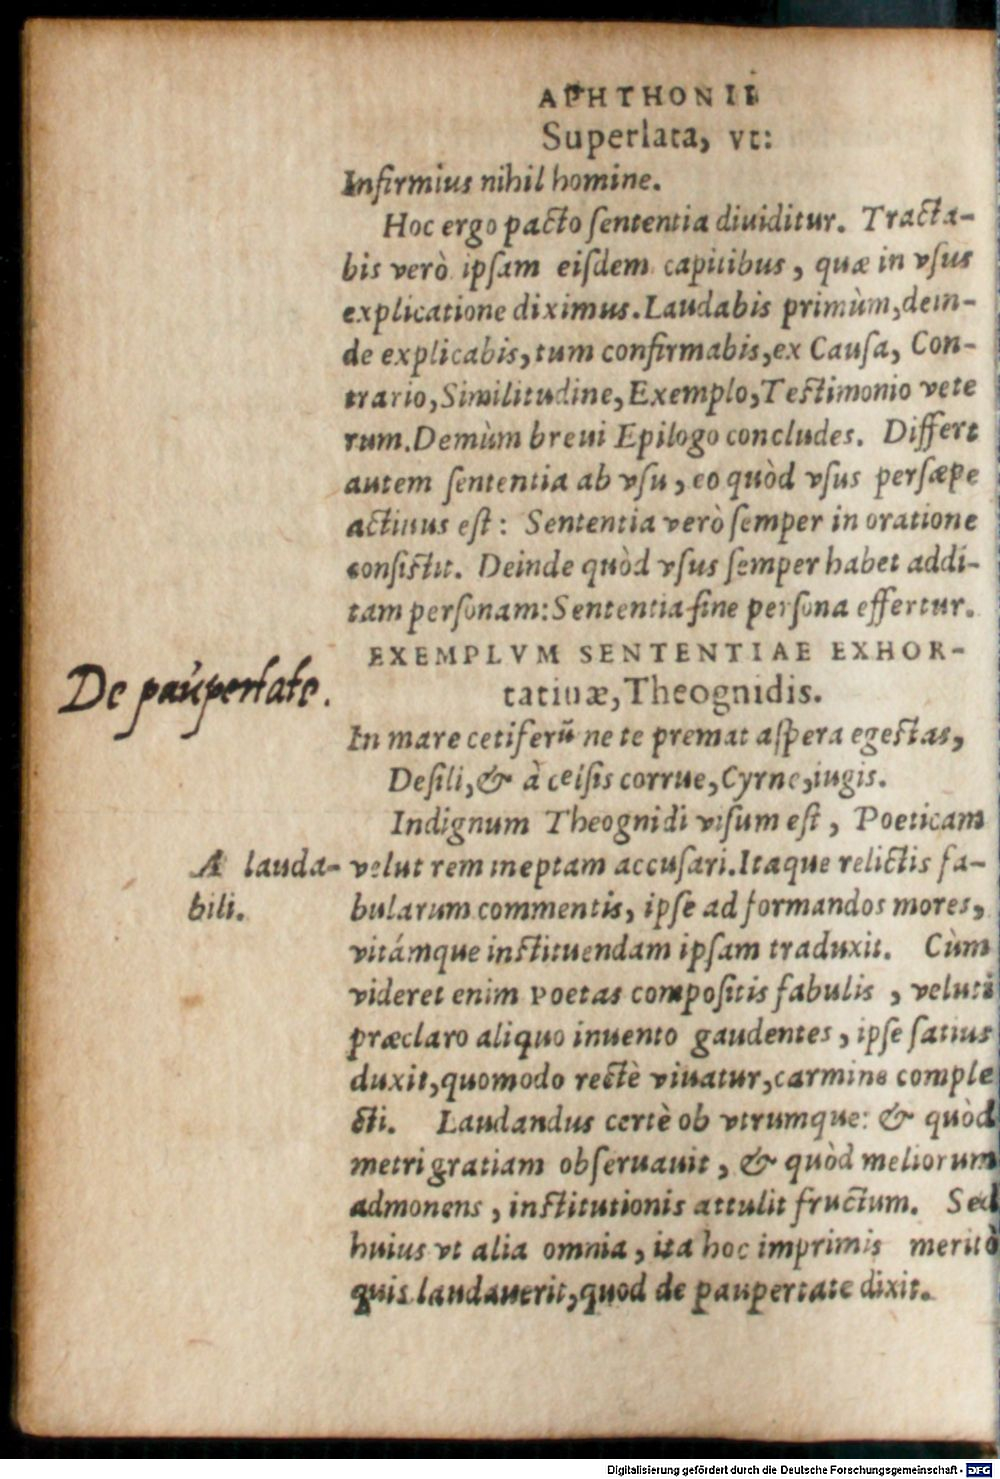 APHTHONII
Superlata, vt:
Infirmius nihil homine.
Hoc ergo pacto sententia diuiditur. Tracta-
bis verò ipsam eisdem capitibus, quæ in vsus
explicatione diximus. Laudabis primùm, dein-
de explicabis, tum confirmabis, ex Causa, Con-
trario, Similitudine, Exemplo, Testimonio vete
rum. Demùm breui Epilogo concludes. Differt
autem sententia ab vsu, eo quòd vsus persæpe
actiuus est: Sententia verò semper in oratione
consistit. Deinde quòd vsus semper habet addi-
tam personam: Sententia sine persona effertur.
EXEMPLVM SENTENTIAE EXHOR-
tatiuæ, Theognidis.
De paupertate.
In mare cetiferũ ne te premat aspera egestas,
Desili, & à celsis corrue, Cyrne, iugis.
Indignum Theognidi visum est, Poeticam
A lauda-
bili.
velut rem ineptam accusari. Itaque relictis fa-
bularum commentis, ipse ad formandos mores,
vitámque instituendam ipsam traduxit. Cùm
videret enim Poetas compositis fabulis, veluti
præclaro aliquo inuento gaudentes, ipse satius
duxit, quomodo rectè viuatur, carmine comple
cti. Laudandus certè ob vtrumque: & quòd
metri gratiam obseruauit, & quòd meliorum
admonens, institutionis attulit fructum. Sed
huius vt alia omnia, ita hoc imprimis meritò
quis laudauerit, quod de paupertate dixit.
Digitalisierung gefördert durch die Deutsche Forschungsgemeinschaft - DFG